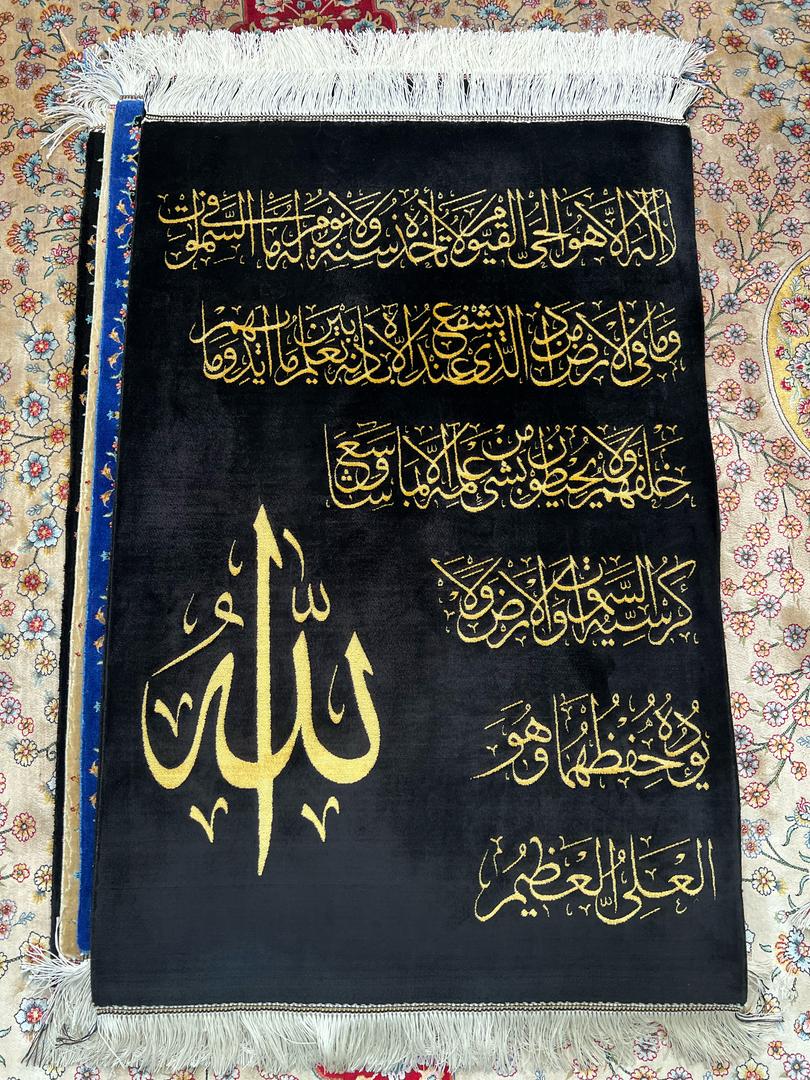 لَا اِلٰهَ اِلَّا هُوَ الْحَىُّ الْقَيُّومُ لَا تَأْخُذُهُ سِنَةٌ وَلَا نَوْمٌ لَهُ مَا فِى السَّمٰوَاتِ
وَمَا فِى الْاَرْضِ مَنْ ذَا الَّذِى يَشْفَعُ عِنْدَهُ اِلَّا بِاِذْنِهِ يَعْلَمُ مَا بَيْنَ اَيْدِيهِمْ وَمَا
خَلْفَهُمْ وَلَا يُحِيطُونَ بِشَىْءٍ مِنْ عِلْمِهِ اِلَّا بِمَا شَاءَ وَسِعَ
كُرْسِيُّهُ السَّمٰوَاتِ وَالْاَرْضَ وَلَا
يَؤُدُهُ حِفْظُهُمَا وَهُوَ
الْعَلِىُّ الْعَظِيمُ
اللّٰه